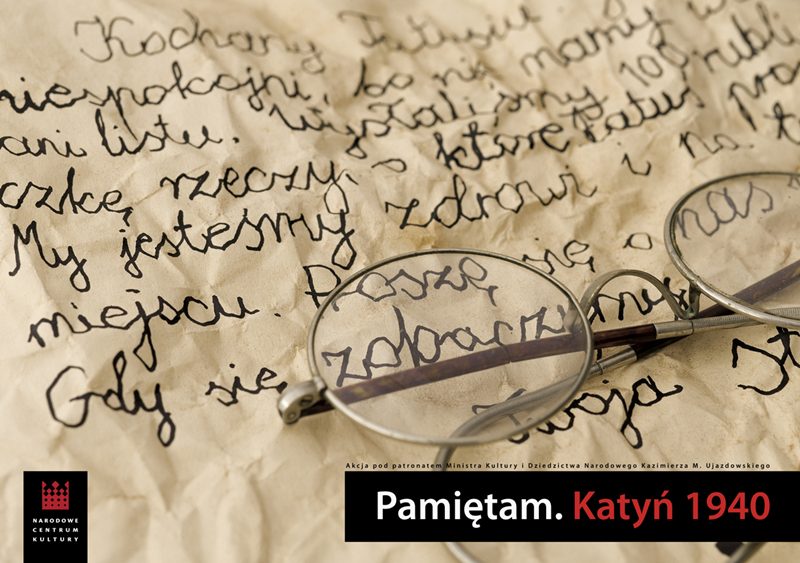 Kochany Tatusiu
niespokojni, bo nie mamy
ani listu. Wysłaliśmy 100 rubli
czkę rzeczy, o które Tatuś pro
My jesteśmy zdrowi i na t
miejscu. Proszę się o nas
Gdy się zobaczymy
Twoja
Akcja pod patronatem Ministra Kultury i Dziedzictwa Narodowego Kazimierza M. Ujazdowskiego
Pamiętam. Katyń 1940
NARODOWE
CENTRUM
KULTURY